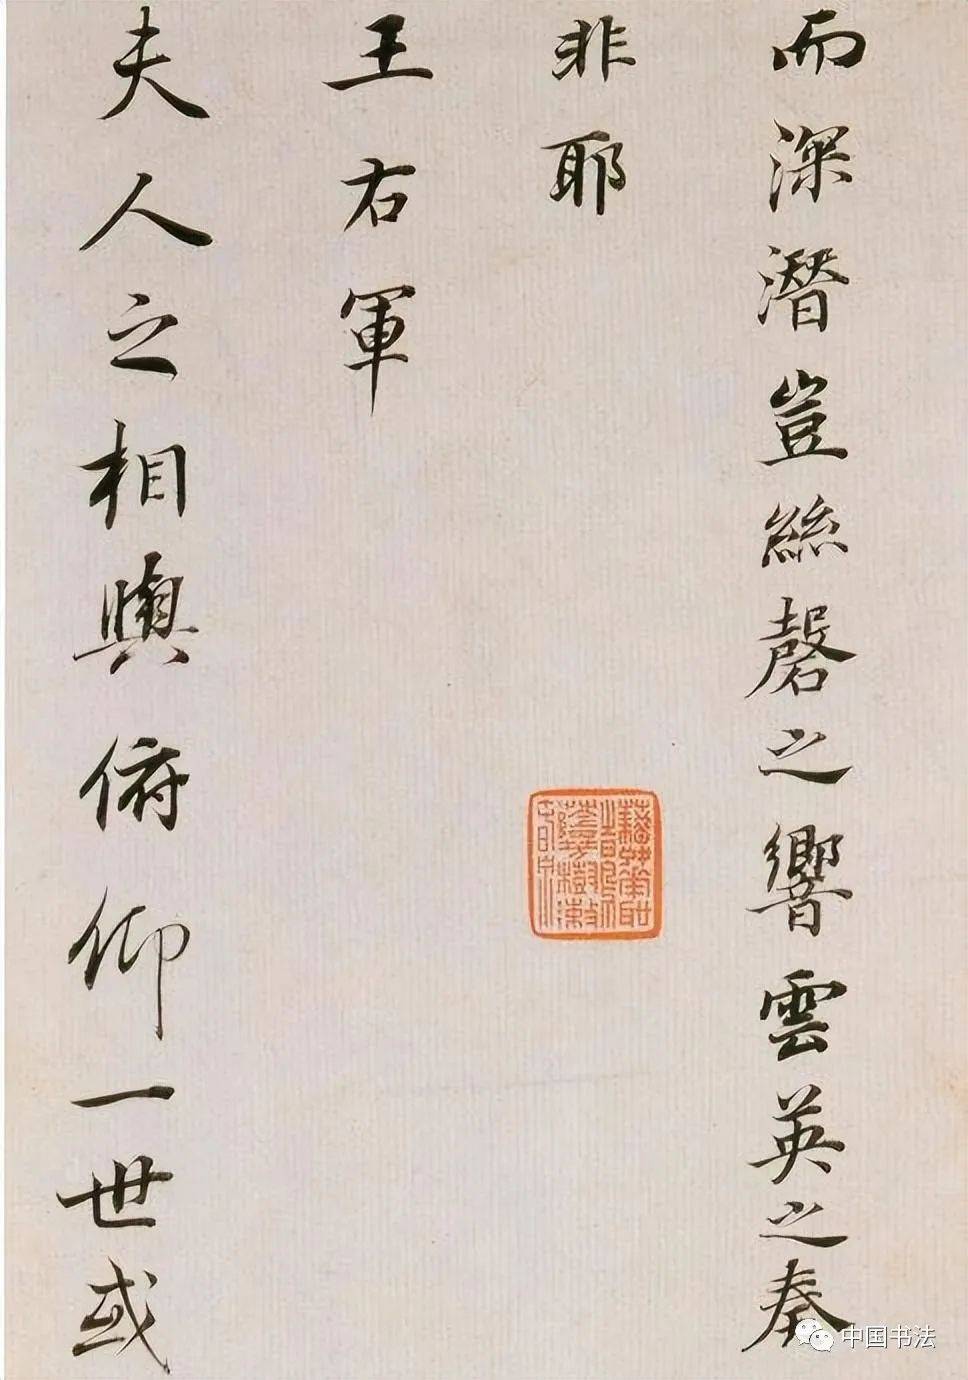 而深潛豈絲磬之響雲英之奏
非耶
王右軍
夫人之相與俯仰一世或
中国书法